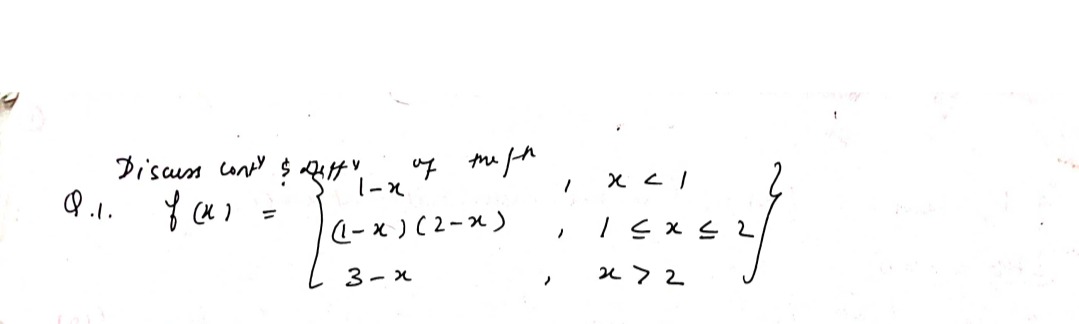 Discuss conty & Diffy of the fn
1-x , x < 1
Q.1. f(x) = { (1-x)(2-x) , 1 ≤ x ≤ 2 }
3-x , x > 2